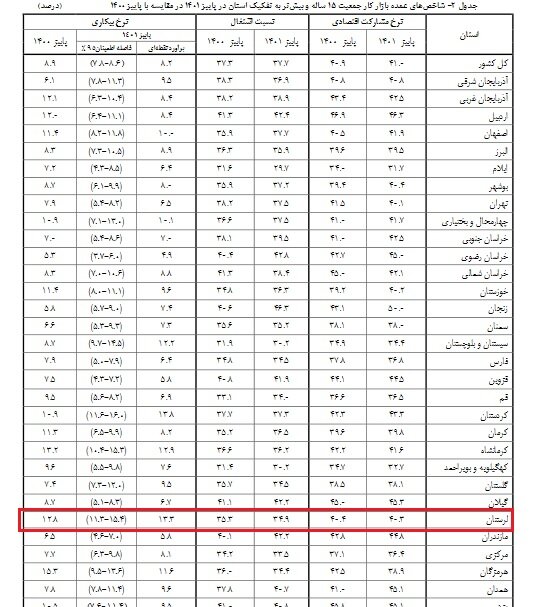 جدول ۲- شاخص‌های عمده بازار کار جمعیت ۱۵ ساله و بیش‌تر به تفکیک استان در پاییز ۱۴۰۱ در مقایسه با پاییز ۱۴۰۰ (درصد)
استان نرخ مشارکت اقتصادی نسبت اشتغال نرخ بیکاری
پاییز ۱۴۰۱ پاییز ۱۴۰۰ پاییز ۱۴۰۱ پاییز ۱۴۰۰ پاییز ۱۴۰۱ پاییز ۱۴۰۰
برآورد نقطه‌ای فاصله اطمینان ۹۵٪
کل کشور ۴۱.۰ ۴۰.۹ ۳۷.۷ ۳۷.۳ ۸.۲ (۷.۸-۸.۶) ۸.۹
آذربایجان شرقی ۴۰.۸ ۴۰.۸ ۳۶.۹ ۳۸.۳ ۹.۵ (۷.۸-۱۱.۳) ۶.۱
آذربایجان غربی ۴۲.۵ ۴۳.۴ ۳۸.۹ ۳۸.۲ ۸.۴ (۶.۳-۱۰.۴) ۱۲.۱
اردبیل ۴۶.۳ ۴۶.۹ ۴۲.۴ ۴۱.۳ ۸.۴ (۶.۴-۱۱.۱) ۱۲.۰
اصفهان ۴۱.۹ ۴۰.۵ ۳۷.۷ ۳۵.۹ ۱۰.۰ (۸.۲-۱۱.۸) ۱۱.۴
البرز ۳۹.۵ ۳۹.۶ ۳۵.۹ ۳۶.۳ ۸.۹ (۷.۳-۱۰.۵) ۸.۳
ایلام ۳۱.۷ ۳۴.۰ ۲۹.۷ ۳۱.۶ ۶.۴ (۴.۳-۸.۵) ۷.۲
بوشهر ۴۰.۴ ۳۹.۴ ۳۷.۲ ۳۵.۹ ۸.۰ (۶.۱-۹.۹) ۸.۷
تهران ۴۰.۱ ۴۱.۵ ۳۷.۵ ۳۸.۲ ۶.۵ (۵.۴-۸.۲) ۷.۹
چهارمحال و بختیاری ۴۱.۷ ۴۱.۰ ۳۷.۵ ۳۶.۶ ۱۰.۱ (۷.۱-۱۳.۰) ۱۰.۹
خراسان جنوبی ۴۲.۵ ۴۱.۰ ۳۹.۵ ۳۸.۱ ۷.۰ (۵.۴-۸.۶) ۷.۰
خراسان رضوی ۴۵.۰ ۴۲.۷ ۴۲.۸ ۴۰.۴ ۴.۹ (۳.۷-۶.۰) ۵.۳
خراسان شمالی ۴۲.۱ ۴۵.۰ ۳۸.۴ ۴۱.۳ ۸.۸ (۷.۰-۱۰.۶) ۸.۳
خوزستان ۴۰.۲ ۳۹.۲ ۳۶.۳ ۳۴.۸ ۹.۶ (۸.۰-۱۱.۱) ۱۱.۴
زنجان ۵۰.۰ ۴۳.۱ ۴۶.۳ ۴۰.۶ ۷.۴ (۵.۷-۹.۰) ۵.۸
سمنان ۳۸.۰ ۳۸.۱ ۳۵.۲ ۳۵.۶ ۷.۳ (۵.۳-۹.۳) ۶.۶
سیستان و بلوچستان ۳۴.۴ ۳۴.۹ ۳۰.۲ ۳۱.۹ ۱۲.۲ (۹.۷-۱۴.۵) ۸.۷
فارس ۳۶.۸ ۳۷.۸ ۳۴.۵ ۳۴.۸ ۶.۴ (۵.۰-۷.۹) ۷.۹
قزوین ۴۴.۵ ۴۴.۱ ۴۱.۹ ۴۰.۸ ۵.۸ (۴.۳-۷.۲) ۷.۵
قم ۳۶.۵ ۳۶.۶ ۳۴.۰ ۳۳.۱ ۶.۹ (۵.۶-۸.۲) ۹.۵
کردستان ۴۳.۳ ۴۲.۳ ۳۷.۳ ۳۷.۷ ۱۳.۸ (۱۱.۶-۱۶.۰) ۱۰.۹
کرمان ۳۹.۸ ۳۹.۶ ۳۶.۵ ۳۵.۲ ۸.۲ (۶.۵-۹.۹) ۱۱.۳
کرمانشاه ۴۱.۶ ۴۲.۲ ۳۶.۲ ۳۶.۶ ۱۲.۹ (۱۰.۴-۱۵.۳) ۱۳.۲
کهگیلویه و بویراحمد ۳۲.۷ ۳۴.۷ ۳۰.۲ ۳۱.۴ ۷.۶ (۵.۵-۹.۸) ۹.۶
گلستان ۳۸.۵ ۳۸.۱ ۳۴.۵ ۳۵.۷ ۹.۵ (۷.۳-۱۲.۰) ۷.۴
گیلان ۴۵.۳ ۴۵.۰ ۴۲.۲ ۴۱.۱ ۶.۷ (۵.۱-۸.۳) ۸.۷
لرستان ۴۰.۳ ۴۰.۴ ۳۴.۹ ۳۵.۳ ۱۳.۳ (۱۱.۳-۱۵.۴) ۱۲.۸
مازندران ۴۴.۸ ۴۲.۸ ۴۲.۲ ۴۰.۱ ۵.۸ (۴.۶-۷.۰) ۶.۵
مرکزی ۳۶.۴ ۳۷.۱ ۳۳.۵ ۳۴.۲ ۸.۱ (۶.۳-۹.۸) ۷.۷
هرمزگان ۳۸.۹ ۴۲.۵ ۳۴.۴ ۳۶.۰ ۱۱.۶ (۹.۵-۱۳.۶) ۱۵.۳
همدان ۴۵.۱ ۴۱.۰ ۴۰.۷ ۳۷.۸ ۹.۶ (۷.۸-۱۱.۴) ۷.۸